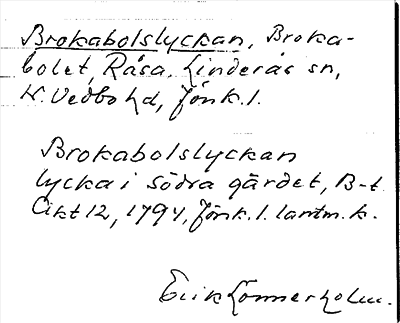 Brokabolslyckan, Broka-
bolet, Råsa, Linderås sn,
N. Vedbo hd, Jönk. l.
Brokabolslyckan
lycka i södra gärdet, B-t
Akt 12, 1794, Jönk. l. lantm. k.
Erik Lönnerholm.